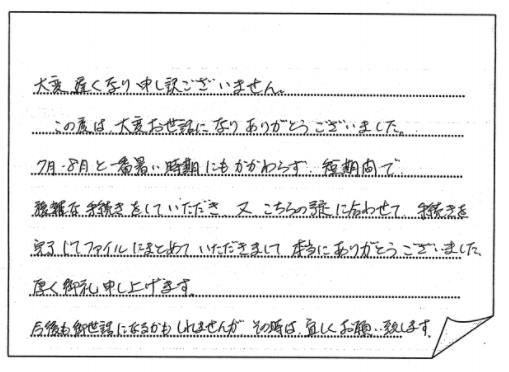 大変遅くなり申し訳ございません。
この度は大変お世話になりありがとうございました。
7月・8月と一番暑い時期にもかかわらず、短期間で
複雑な手続きをしていただき 又 こちらの予定に合わせて 手続きを
完了してファイルにまとめていただきまして 本当にありがとうございました。
厚く御礼申し上げます。
今後も御世話になるかもしれませんが その時は、宜しくお願い致します。